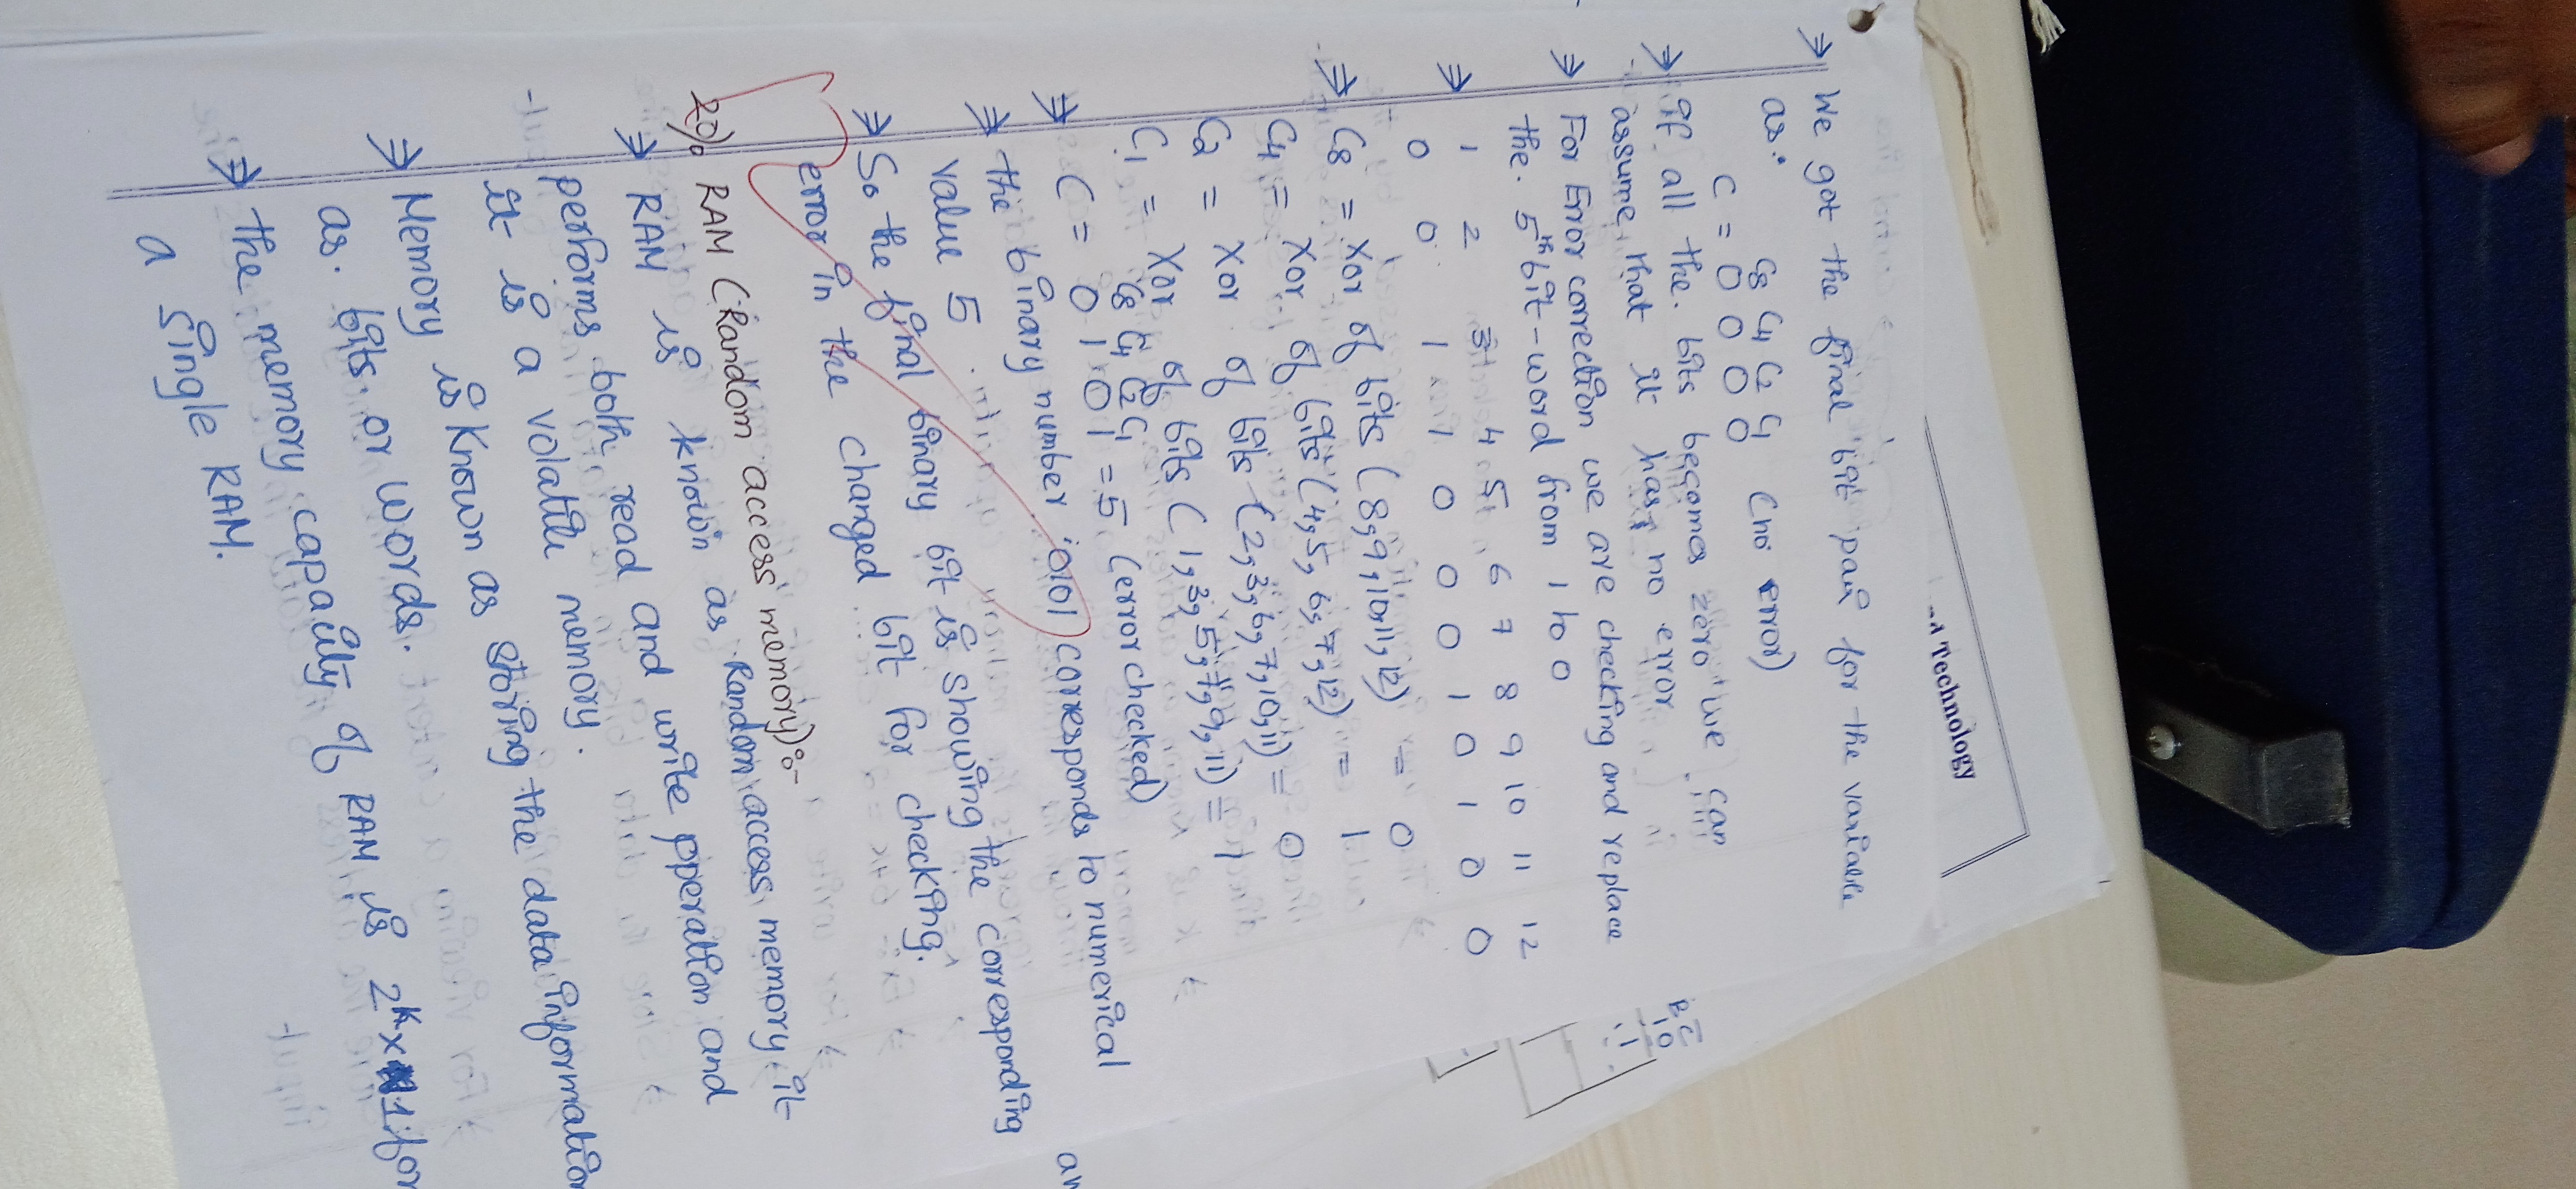 Technology
⇒ We got the final bit pair for the variable
as.
C8 C4 C2 C1
C = 0 0 0 0 (no error)
⇒ If all the. bits becomes zero we can
assume that it has no error
⇒ For Error correction we are checking and replace
the. 5th bit-word from 1 to 0
⇒ 1 2 3 4 5 6 7 8 9 10 11 12
0 0 1 1 0 0 0 1 0 1 0 0
⇒ C8 = XOR of bits (8,9,10,11,12) = 0
C4 = XOR of bits (4,5,6,7,12) = 1
C2 = XOR of bits (2,3,6,7,10,11) = 0
C1 = XOR of bits (1,3,5,7,9,11) = 1
C8 C4 C2 C1
⇒ C = 0 1 0 1 = 5 (error checked)
⇒ the binary number 0101 corresponds to numerical
value 5
⇒ So the final binary bit is showing the corresponding
error in the changed bit for checking.
2b) RAM (Random access memory):-
⇒ RAM is known as Random access memory it
performs both read and write pperation and
it is a volatile memory.
⇒ Memory is known as storing the data information
as. bits. or words.
⇒ the memory capacity of RAM is 2^K x 1 for
a single RAM.
BC
10
1